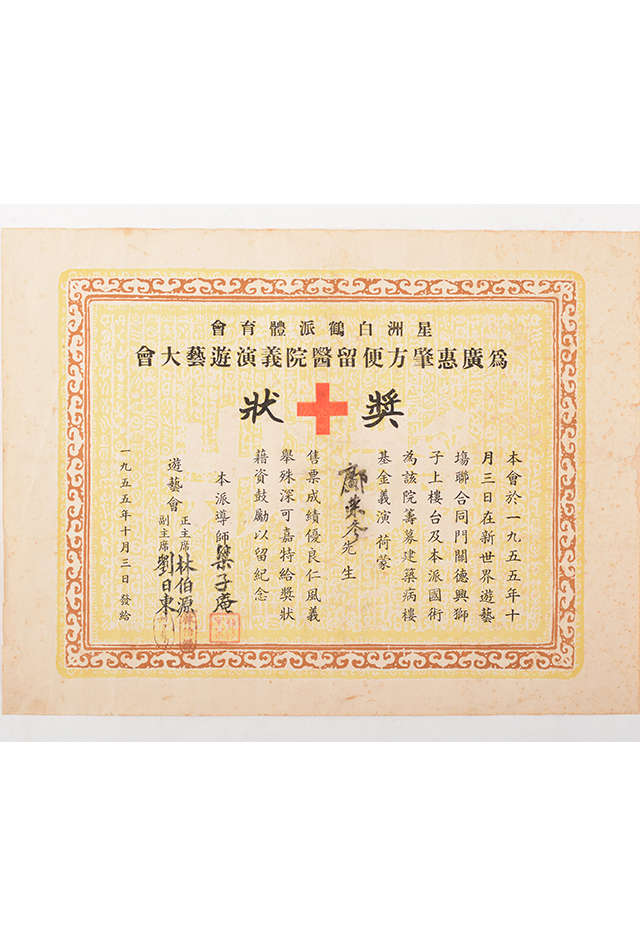 星洲白鶴派體育會
爲廣惠肇方便留醫院義演遊藝大會
獎狀
本會於一九五五年十
月三日在新世界遊藝
塲聯合同門關德興獅
子上樓台及本派國術
為該院籌募建築病樓
基金義演荷蒙
鄺榮參先生
售票成績優良仁風義
舉殊深可嘉特給獎狀
藉資鼓勵以留紀念
本派導師 子庵
遊藝會
正主席 林伯源
副主席 劉日東
一九五五年十月三日發給